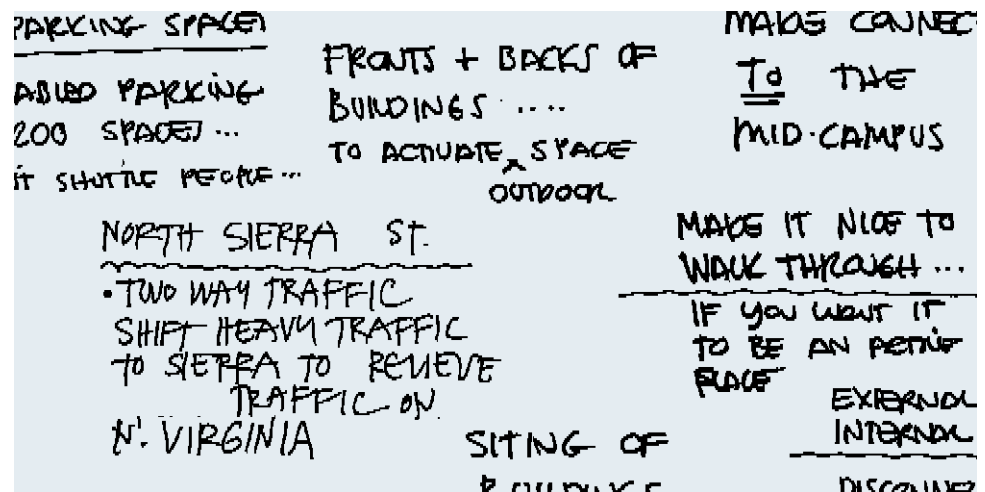 PARKING SPACES
ABLED PARKING
200 SPACES ...
IT SHUTTLE PEOPLE ...
FRONTS + BACKS OF
BUILDINGS ....
TO ACTIVATE ^ SPACE
OUTDOOR
MAKE CONNECT
TO THE
MID-CAMPUS
NORTH SIERRA ST.
• TWO WAY TRAFFIC
SHIFT HEAVY TRAFFIC
TO SIERRA TO RELIEVE
TRAFFIC ON
N. VIRGINIA
MAKE IT NICE TO
WALK THROUGH ...
IF YOU WANT IT
TO BE AN ACTIVE
PLACE
EXTERNAL
INTERNAL
DISCONNE
SITING OF
BUILDINGS